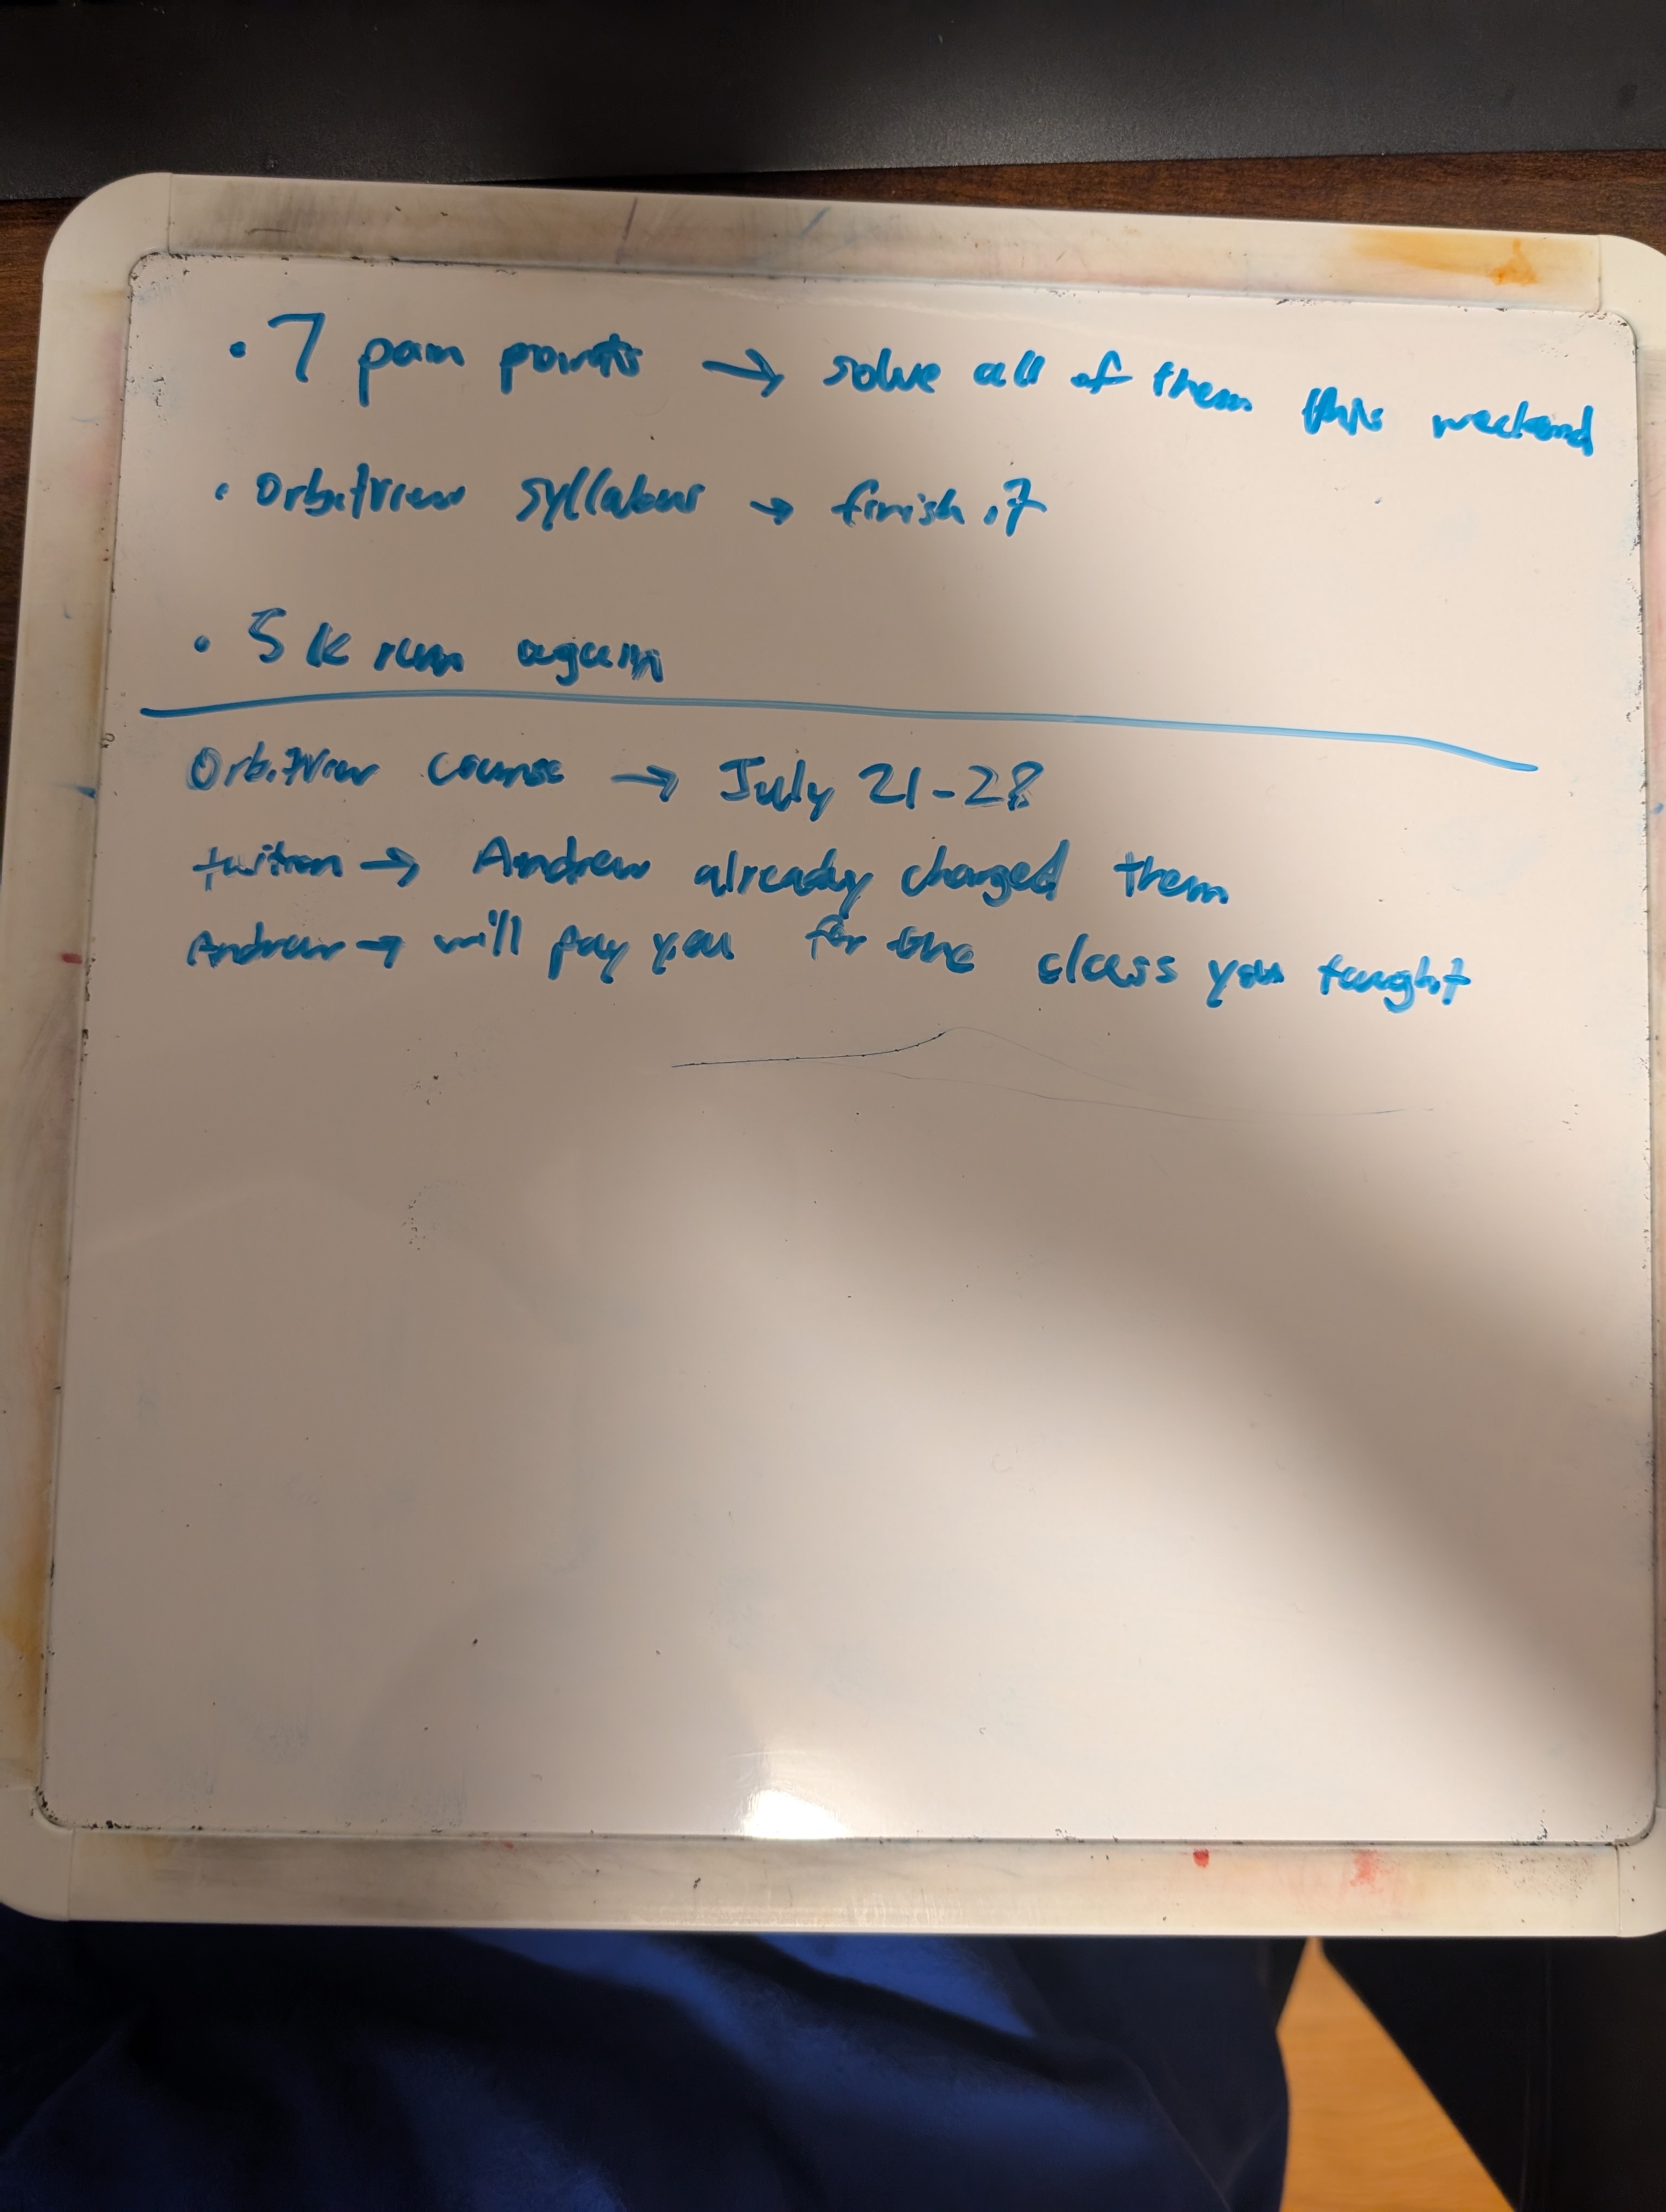 • 7 pain points → solve all of them this weekend
• Orbitview syllabus → finish it
• 5k run again
Orbitview course → July 21-28
tuition → Andrew already charged them
Andrew → will pay you for the class you taught